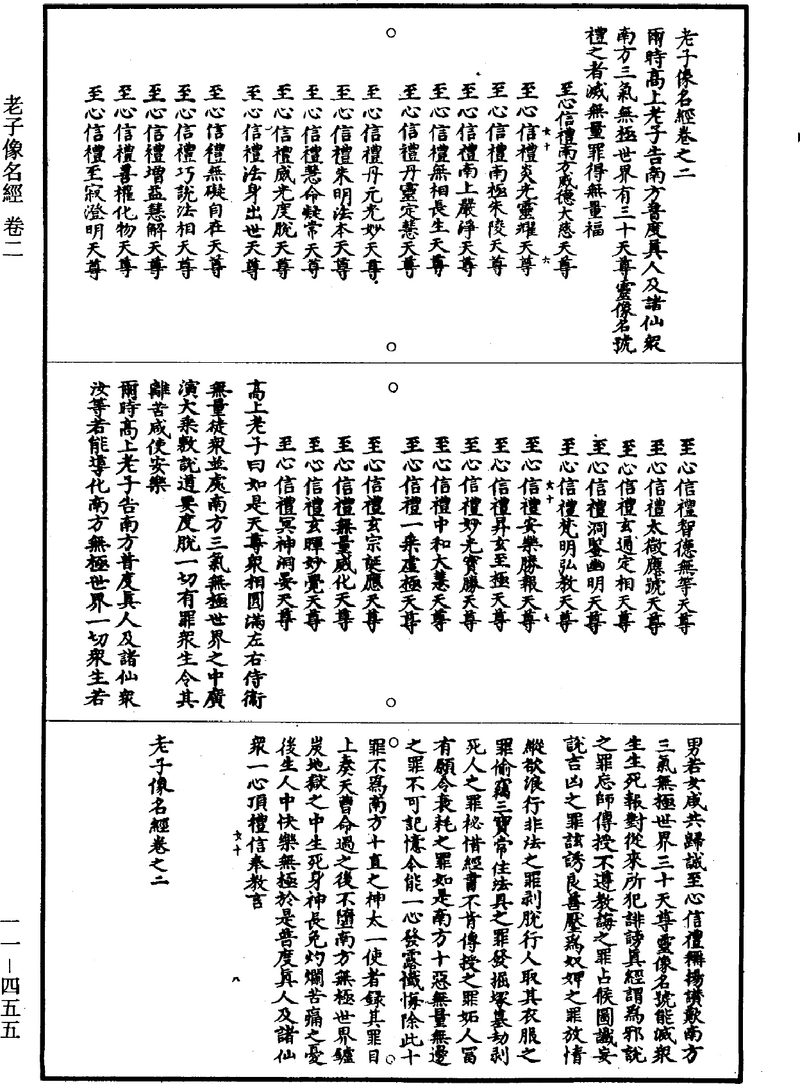 老子像名經 卷二
老子像名經卷之二
爾時高上老子告南方普度真人及諸仙衆
南方三氣無極世界有三十天尊靈像名號
禮之者滅無量罪得無量福
至心信禮南方威德大慈天尊
至心信禮炎光靈耀天尊
至心信禮南極朱陵天尊
至心信禮南上嚴淨天尊
至心信禮無相長生天尊
至心信禮丹靈定慧天尊
至心信禮丹元光妙天尊
至心信禮朱明法本天尊
至心信禮慧命凝常天尊
至心信禮威光度脫天尊
至心信禮法身出世天尊
至心信禮無礙自在天尊
至心信禮巧說法相天尊
至心信禮增益慧解天尊
至心信禮善權化物天尊
至心信禮至寂澄明天尊
至心信禮智德無等天尊
至心信禮太微應號天尊
至心信禮玄通定相天尊
至心信禮洞鑒幽明天尊
至心信禮梵明弘教天尊
至心信禮安樂勝報天尊
至心信禮昇玄至極天尊
至心信禮妙光寶勝天尊
至心信禮中和大慧天尊
至心信禮一乘虛極天尊
至心信禮玄宗誕應天尊
至心信禮無量威化天尊
至心信禮玄暉妙覺天尊
至心信禮冥神洞晏天尊
高上老子曰如是天尊衆相圓滿左右侍衛
無量徒衆並處南方三氣無極世界之中廣
演大乘敷說道要度脫一切有罪衆生令其
離苦咸使安樂
爾時高上老子告南方普度真人及諸仙衆
汝等若能導化南方無極世界一切衆生若
男若女咸共歸誠至心信禮稱揚讚歎南方
三氣無極世界三十天尊靈像名號能滅衆
生生死報對從來所犯誹謗真經謂爲邪說
之罪忘師傳授不遵教誨之罪占候圖讖妄
說吉凶之罪誣誘良善壓爲奴婢之罪放情
縱欲浪行非法之罪剥脫行人取其衣服之
罪偷竊三寶常住法具之罪發掘塚墓劫剥
死人之罪秘惜經書不肯傳授之罪妬人富
有願令衰耗之罪如是南方十惡無量無邊
之罪不可記憶今能一心發露懺悔除此十
罪不爲南方十直之神太一使者録其罪目
上奏天曹命過之後不墮南方無極世界鑪
炭地獄之中生死身神長免灼爛苦痛之憂
後生人中快樂無極於是普度真人及諸仙
衆一心頂禮信奉教言
老子像名經卷之二
一一－四五五